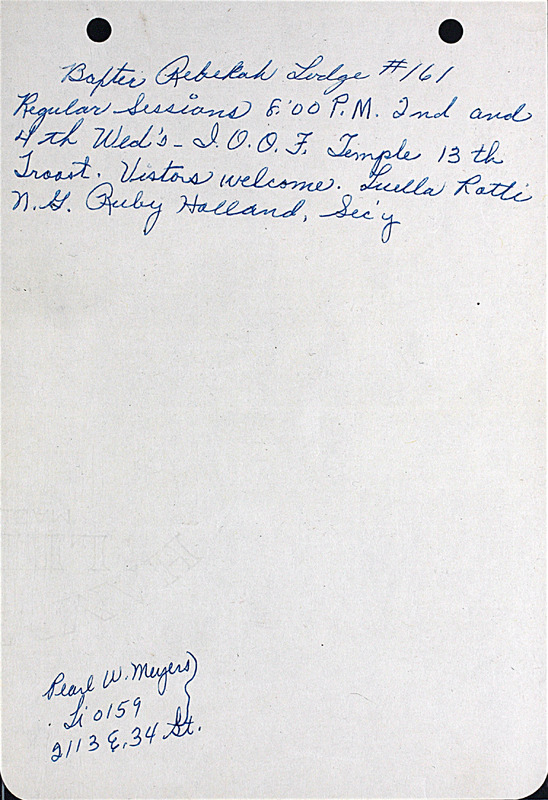 Baxter Rebekah Lodge #161
Regular Sessions 8:00 P.M. 2nd and
4th Wed's - I.O.O.F. Temple 13th
Troost. Vistors welcome. Luella Ratti
N.G. Ruby Holland, Sec'y
Pearl W. Meyers
Li 0159
2113 E. 34 St.